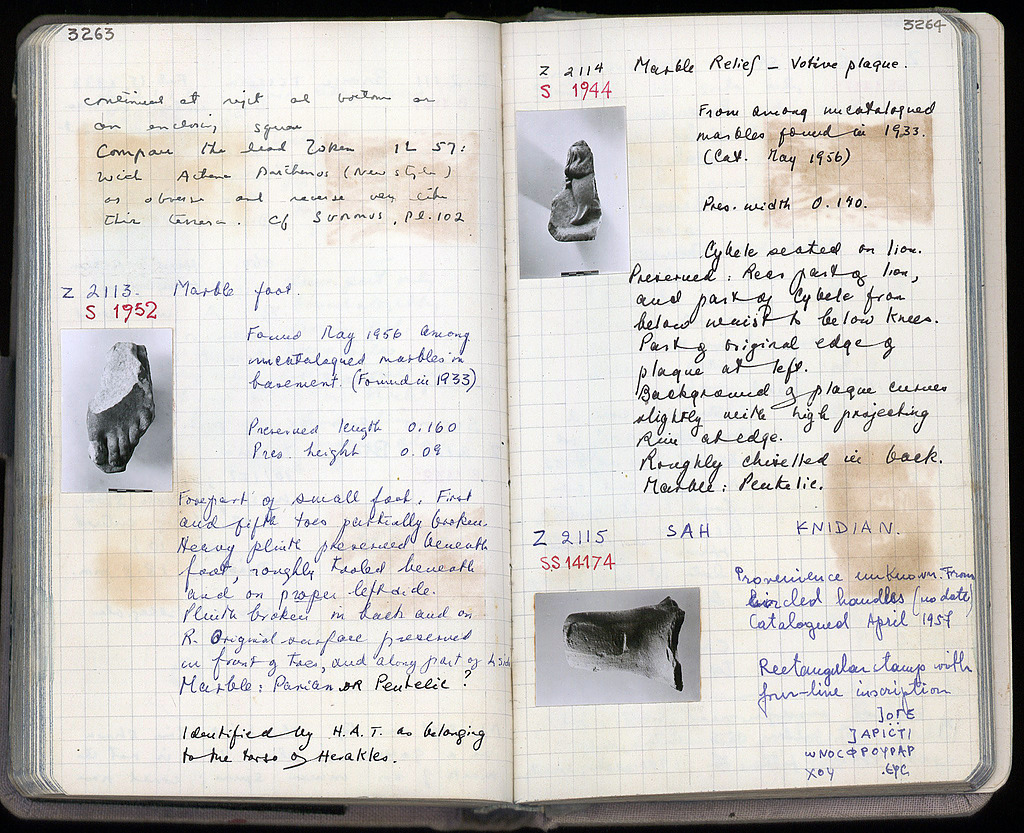 3263
continued at right at bottom on
an enclosing square
Compare the lead Token IL 57:
with Athena Parthenos (New Style)
as obverse and reverse very like
this tessera. Cf Svoronos, Pl. 102
Z 2113. Marble foot.
S 1952
Found May 1956 among
uncatalogued marbles in
basement. (Found in 1933)
Preserved length 0.160
Pres. height 0.09
Forepart of small foot. First
and fifth toes partially broken.
Heavy plinth preserved beneath
foot, roughly tooled beneath
and on proper left side.
Plinth broken in back and on
R. Original surface preserved
in front of toes, and along part of L side
Marble: Parian or Pentelic?
Identified by H.A.T. as belonging
to the torso of Herakles.
3264
Z 2114 Marble Relief – Votive plaque.
S 1944
From among uncatalogued
marbles found in 1933.
(Cat. May 1956)
Pres. width 0.140.
Cybele seated on lion.
Preserved: Rear part of lion,
and part of Cybele from
below waist to below knees.
Part of original edge of
plaque at left.
Background of plaque curves
slightly with high projecting
rim at edge.
Roughly chiselled in back.
Marble: Pentelic.
Z 2115 SAH KNIDIAN.
SS 14174
Provenience unknown. From
circled handles (no date)
Catalogued April 1957
Rectangular stamp with
four-line inscription
]ΟΓΕ
]ΑΡΙCΤΙ
ωΝΟCΦΡΟΥΡΑΡ
ΧΟΥ .ΕΡC